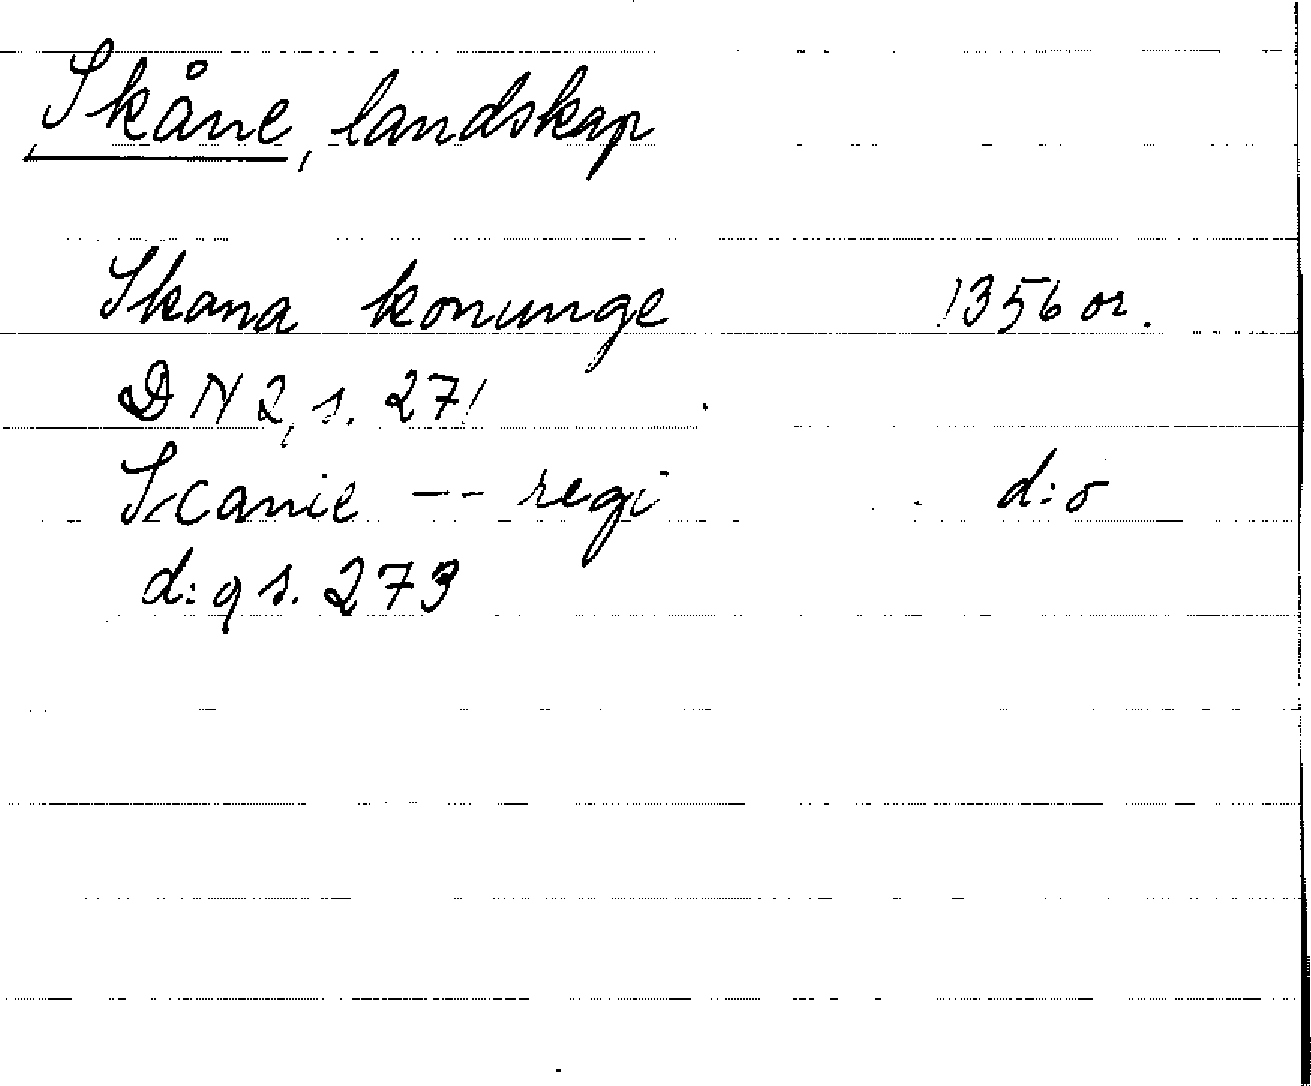 Skåne, landskap
Skana konunge 1356 or.
DN 2, s. 271
Scanie -- regi d:o
d:o s. 273